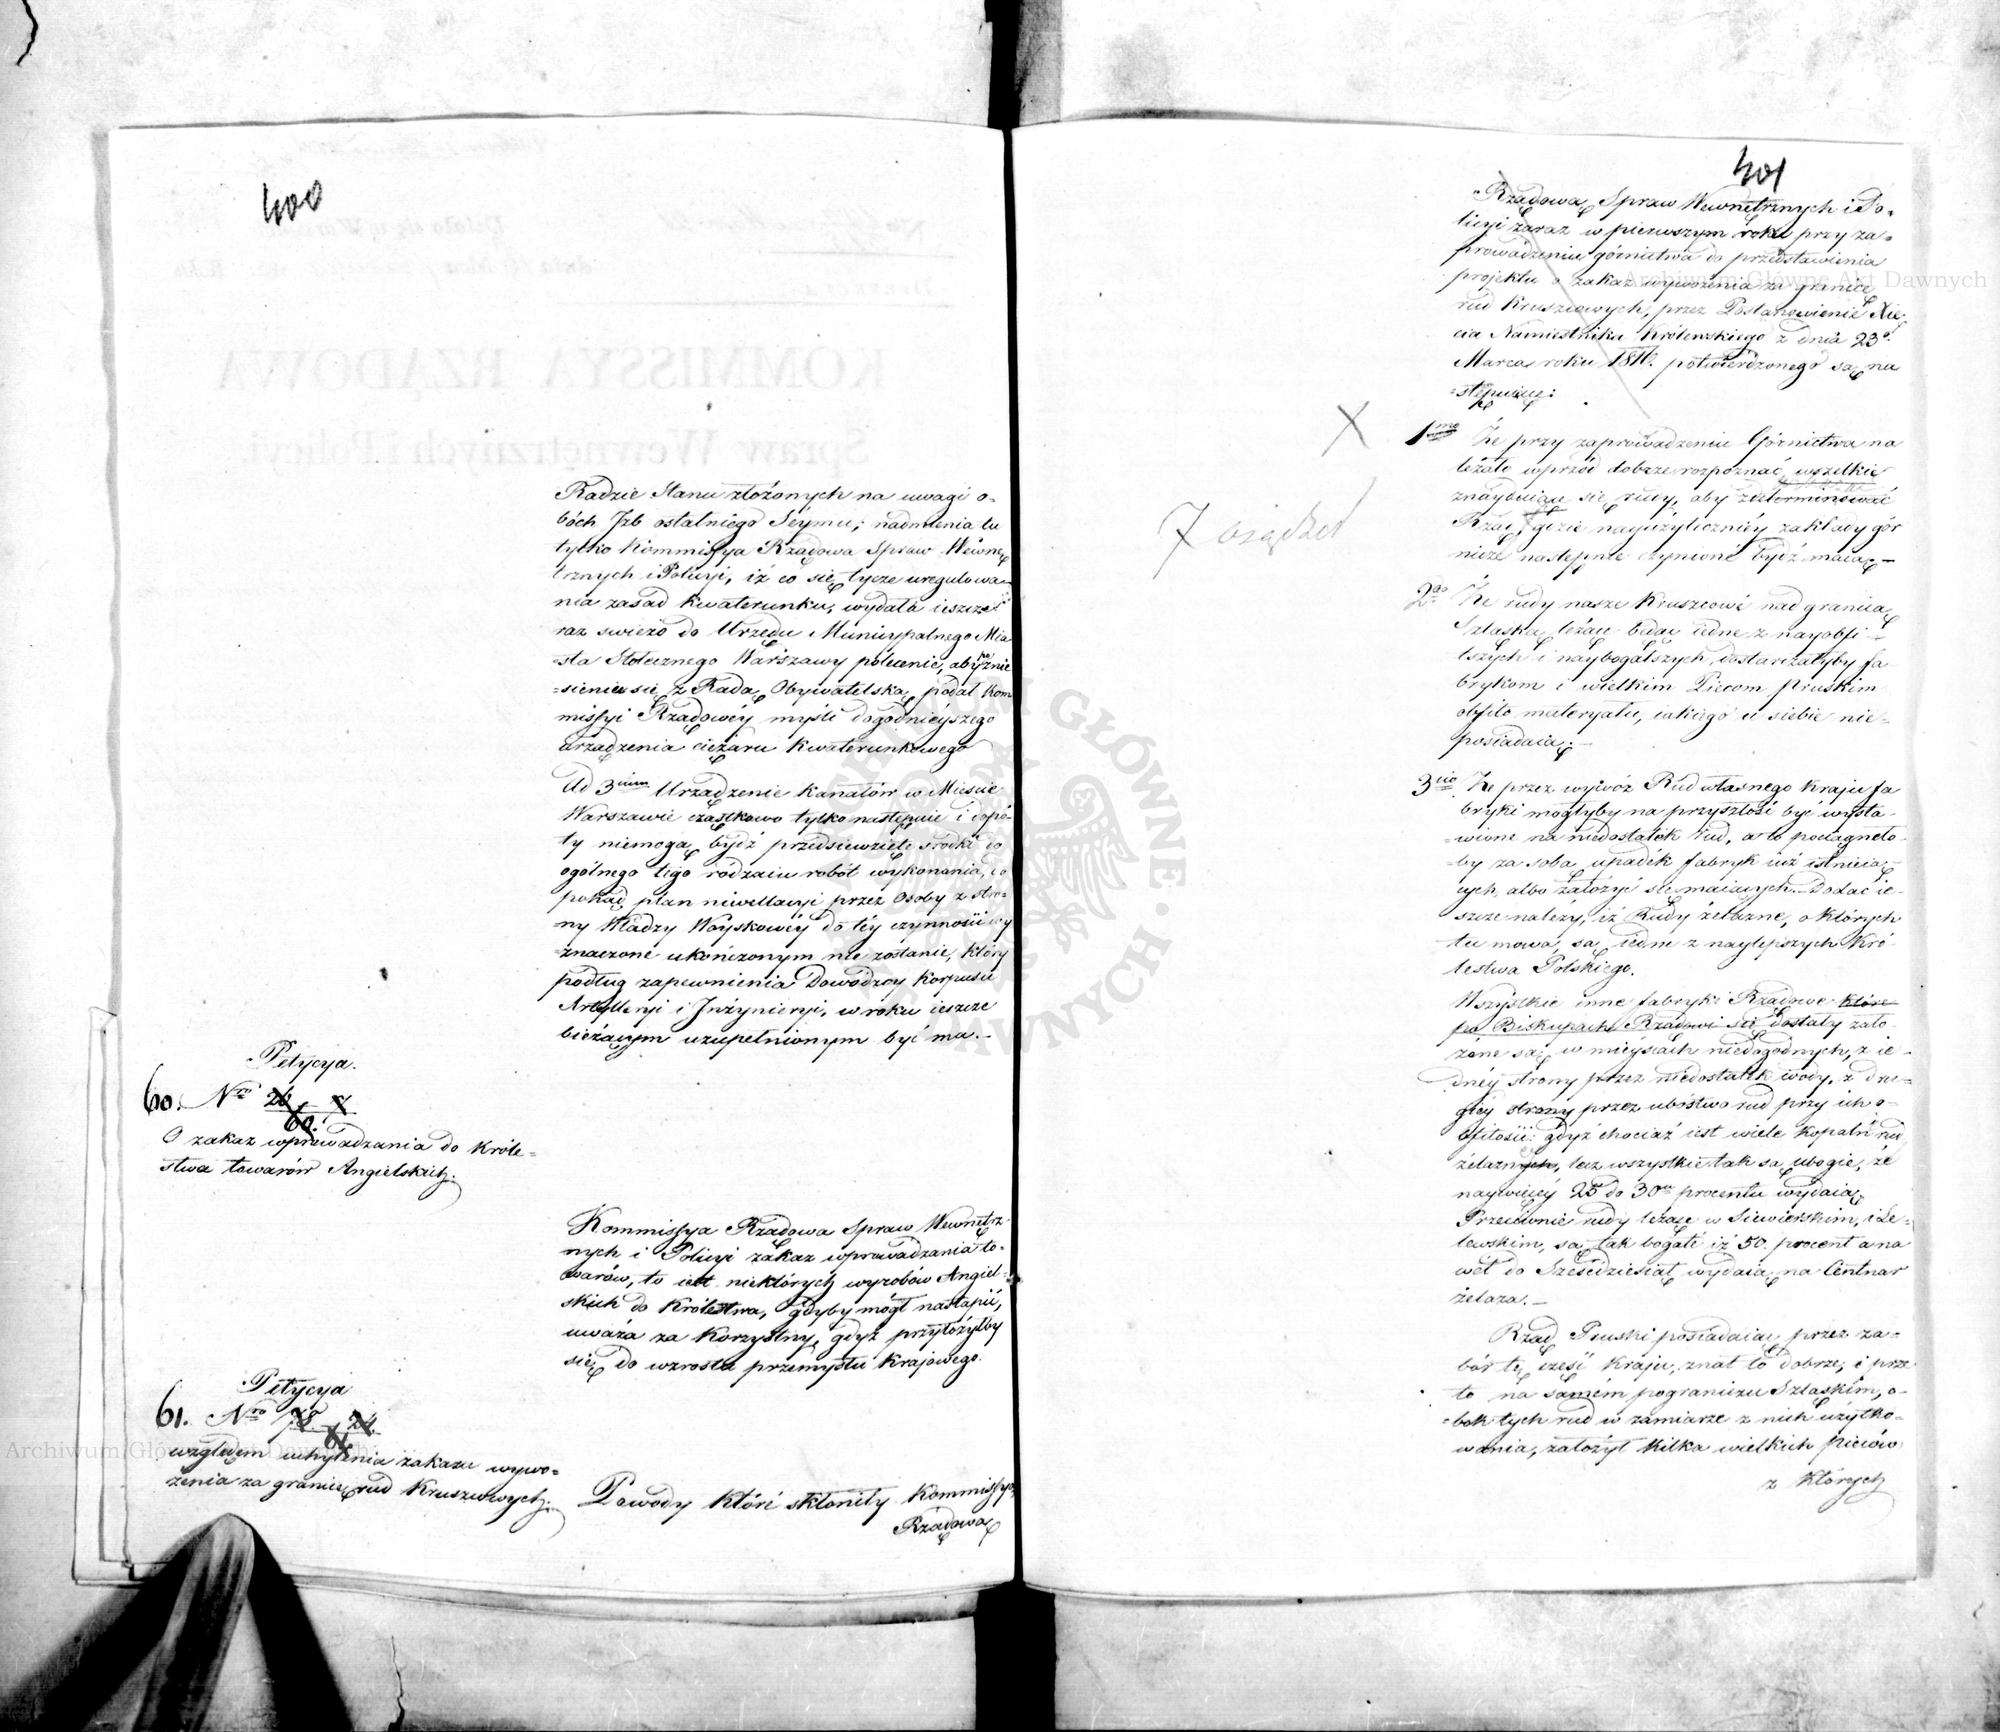 400
Radzie Stanu złożonych na uwagi o-
bóch Izb ostatniego Séymu; nadmienia tu
tylko Kommissya Rządowa Spraw Wewnę
trznych i Policyi, iż co się tycze uregulowa-
nia zasad kwaterunku, wydała ieszcze
raz świeżo do Urzędu Municypalnego Mia
sta Stołecznego Warszawy polecenie, aby po znie
=sieniu się z Radą Obywatelską podał Kom
missyi Rządowéy myśli dogodnieyszego
urządzenia ciężaru kwaterunkowego
Ad 3ium Urządzenie kanałów w Mieście
Warszawie cząstkowo tylko następuie i dopó-
ty niemogą bydź przedsięwzięte srodki do
ogólnego tego rodzaiu robót wykonania, do
pokąd plan niwellacyi przez Osoby z stro=
=ny Władzy Woyskowéy do téy czynności wy
=znaczone ukończonym nie zostanie, który
podług zapewnienia Dowódzcy Korpusu
Artylleryi i Inżynieryi, w roku ieszcze
bieżącym uzupełnionym być ma.-
Petycya.
60. Nro 26 X
60.
O zakaz wprowadzania do Króle=
stwa towarów Angielskich.
Kommissya Rządowa Spraw Wewnętrz
nych i Policyi zakaz wprowadzania to-
warów, to iest niektórych wyrobów Angiel-
skich do Królestwa, gdyby mógł nastąpić,
uważa za korzystny, gdyż przyłożyłby
się do wzrostu przemysłu krajowego.
Petycya
61. Nro 78 24
61
względem uchylenia zakazu wywo=
żenia za granicę rud Kruszcowych.
Powody które skłoniły Kommissyą
Rządową
401
Rządową Spraw Wewnętrznych i Po-
licyi zaraz w pierwszym roku przy za=
prowadzeniu górnictwa do przedstawienia
projektu o zakaz wywożenia za granicę
rud Kruszcowych, przez Postanowienie Xię
cia Namiestnika Królewskiego z dnia 23o
Marca roku 1816. potwierdzonego są na
=stępuiące:
X
1mo Że przy zaprowadzeniu Górnictwa na
leżało wprzód dobrze rozpoznać wszelkie
znayduiące się rudy, aby zdeterminować
Rząd, gdzie nayużyteczniéy zakłady gór
nicze następnie czynione bydź maią.-
2do Że rudy nasze Kruszcowe nad granicą
Szląską leżące będąc iedne z nayobfi-
tszych i naybogatszych, dostarczałyby fa-
brykom i wielkim Piecom Pruskim
obfito materyału, iakiego u siebie nie=
posiadaią.-
3tio Że przez wywóz Rud własnego kraju fa
bryki mogłyby na przyszłość być wysta-
wione na niedostatek rud, a to pociągnęło-
=by za sobą upadek fabryk iuż istnieią-
cych, albo założyć się maiących. Dodać ie-
szcze należy, iż Rudy żelazne, o których
tu mowa, są iedne z naylepszych Kró-
lestwa Polskiego.
Wszystkie inne fabryki Rządowe które
po Biskupach Rządowi się dostały zało-
żone są w mieyscach niedogodnych, z ie-
dnéy strony przez niedostatek wody, z dru-
giéy strony przez ubóstwo rud przy ich o-
bfitości: gdyż chociaż iest wiele kopalń rud
żelaznych, lecz wszystkie tak są ubogie, że
naywięcéy 25 do 30 procentu wydaią.
Przeciwnie rudy leżące w Siewierskim, i Le-
lewskim, są tak bogate iż 50. procent a na
wet do Sześćdziesiąt wydaią na Centnar
żelaza.-
Rząd Pruski posiadaiąc przez za=
bór tę część kraju, znał to dobrze, i prze
to na samém pograniczu Szląskim, o-
=bok tych rud w zamiarze z nich użytko-
wania, założył kilka wielkich pieców
z których
Archiwum Główne Akt Dawnych
Archiwum Główne Akt Dawnych